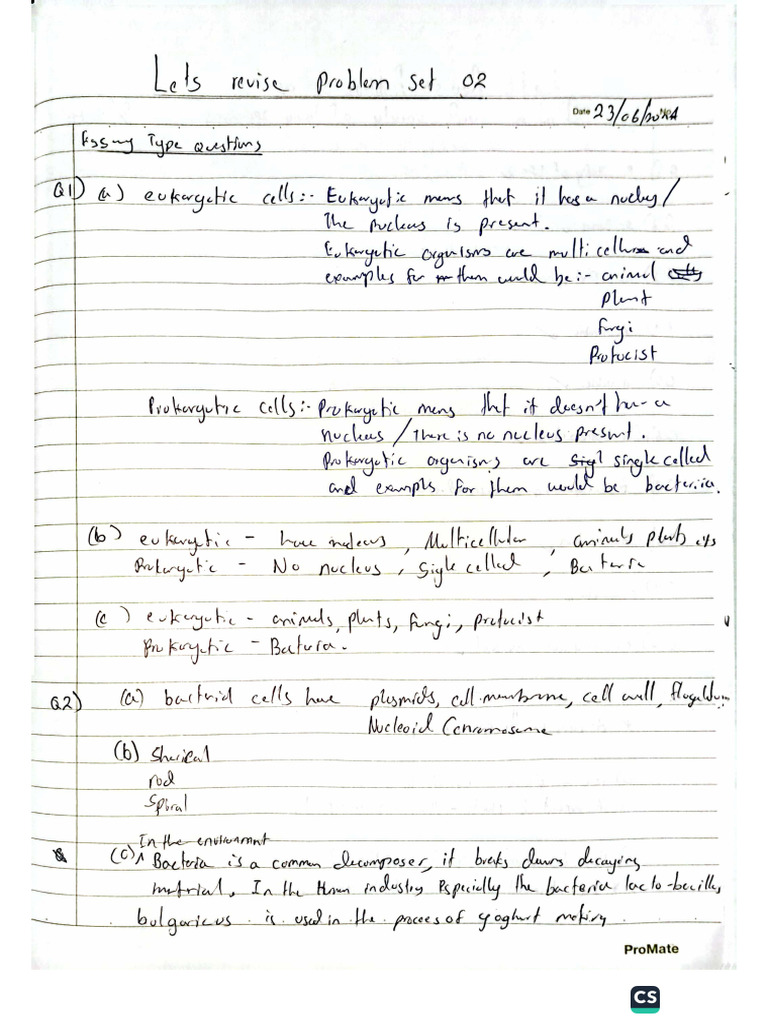 Lets revise problem set 02
Date 23/06/20
Essay Type Questions
Q1) (a) eukaryotic cells:- Eukaryotic means that it has a nucleus/
The nucleus is present.
Eukaryotic organisms are multicellular and
examples for them would be:- animal
Plant
Fungi
Protocist
Prokaryotic cells:- Prokaryotic means that it doesn't have a
nucleus / There is no nucleus present.
Prokaryotic organisms are single celled
and examples for them would be bacteria.
(b) eukaryotic - have nucleus, Multicellular, animals plants
Prokaryotic - No nucleus, Sigle celled, Bacteria
(c) eukaryotic - animals, plants, fungi, protocist
Prokaryotic - Bacteria.
Q2) (a) bacterial cells have plasmids, cell membrane, cell wall, flagellum
Nucleoid
(b) Sherical
rod
Spiral
In the environment
(c) Bacteria is a common decomposer, it breaks downs decaying
material, In the Human industry Especially the bacteria lacto-bacillus
bulgaricus is used in the process of yoghurt making.
ProMate
CS